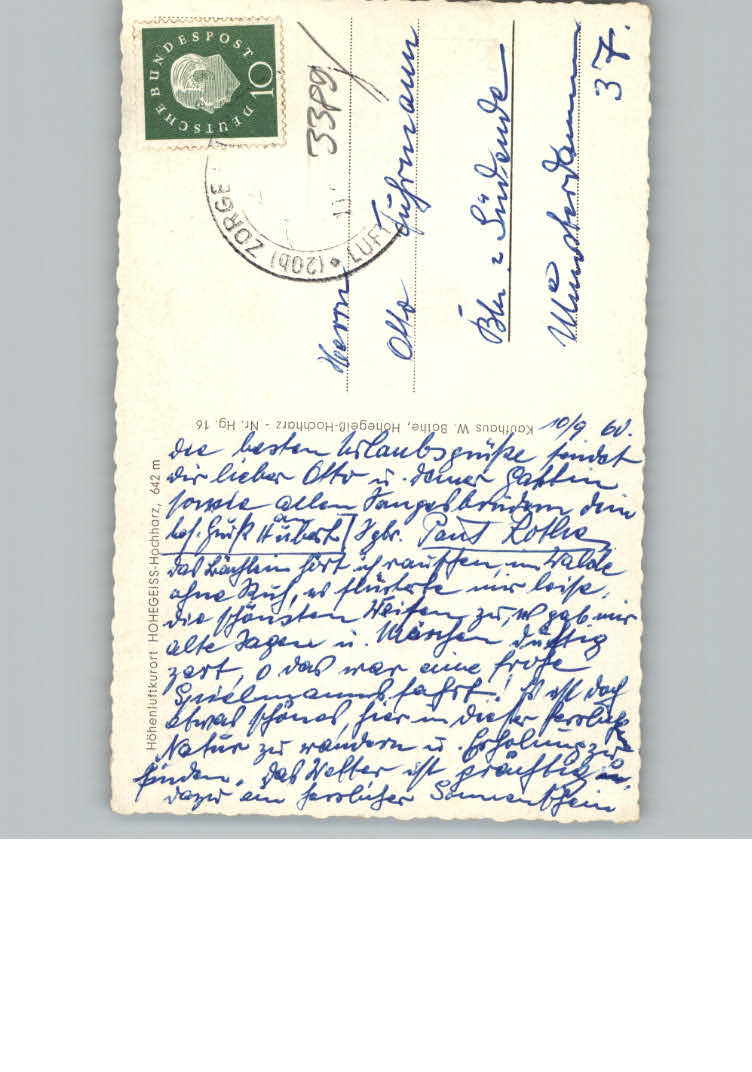 DEUTSCHE BUNDESPOST
10
(20b) ZORGE
LUFT
3389
Herrn
Otto Fuhrmann
Bln. Südende
Munsterdamm
37.
Kaufhaus W. Bothe, Hohegeiß-Hochharz - Nr. Hg. 16
Höhenluftkurort HOHEGEISS-Hochharz, 642 m
10/9 60.
Die besten Urlaubsgrüße sendet
dir lieber Otto u. deiner Gattin
sowie allen Sangesbrüdern dein
bes. Gruß an Hubert Sgbr. Paul Lothe
Das Bächlein hört ich rauschen, im Walde
ohne Ruh, es flüsterte mir leise,
die schönsten Weisen zu, es gab mir
alte Sagen u. Märchen duftig
zart, o das war eine frohe
Spielmannsfahrt! Es ist doch
etwas schönes, hier in dieser herrlich
Natur zu wandern u. Erholung zu
finden. Das Wetter ist prächtig u.
dazu ein herrlicher Sonnenschein